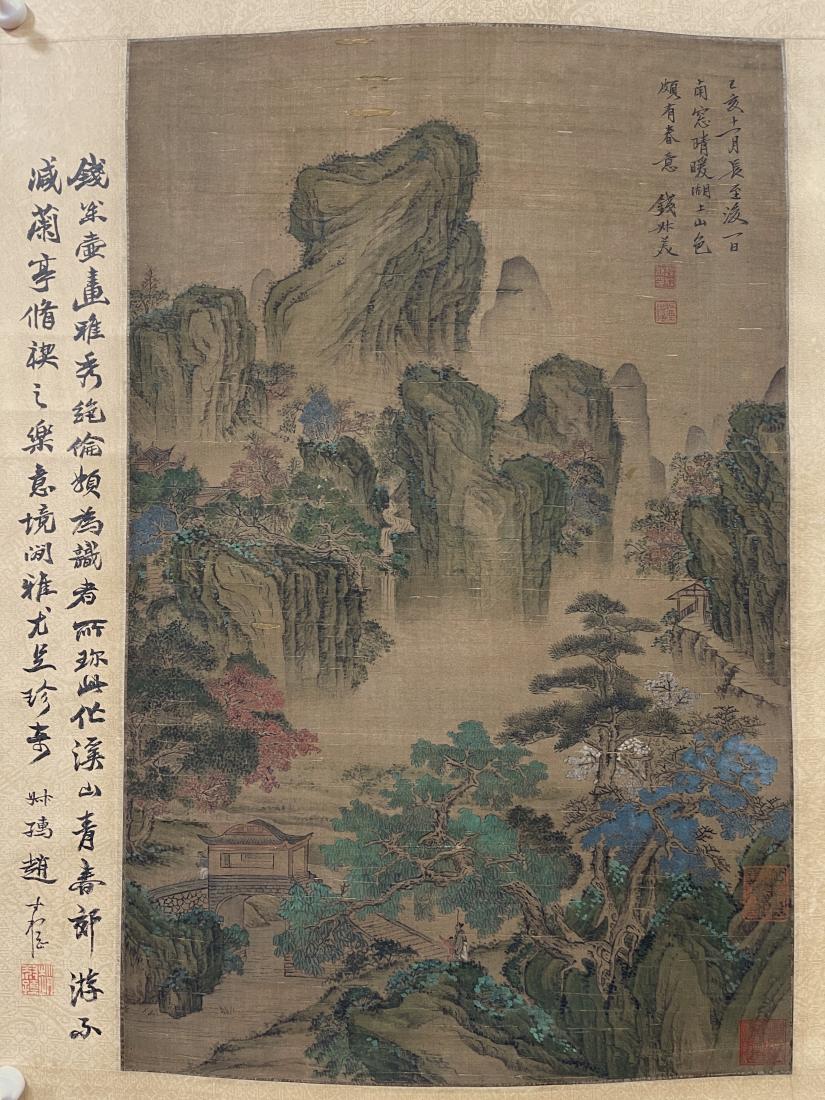 乙亥十一月長至後一日
南窓晴暖湖上山色
頗有春意 錢叔美
錢叔壺畫雅秀絶倫頗為識者所珍此作溪山青春郊游不
減蘭亭脩禊之樂意境閒雅尤足珍玩
叔孺趙